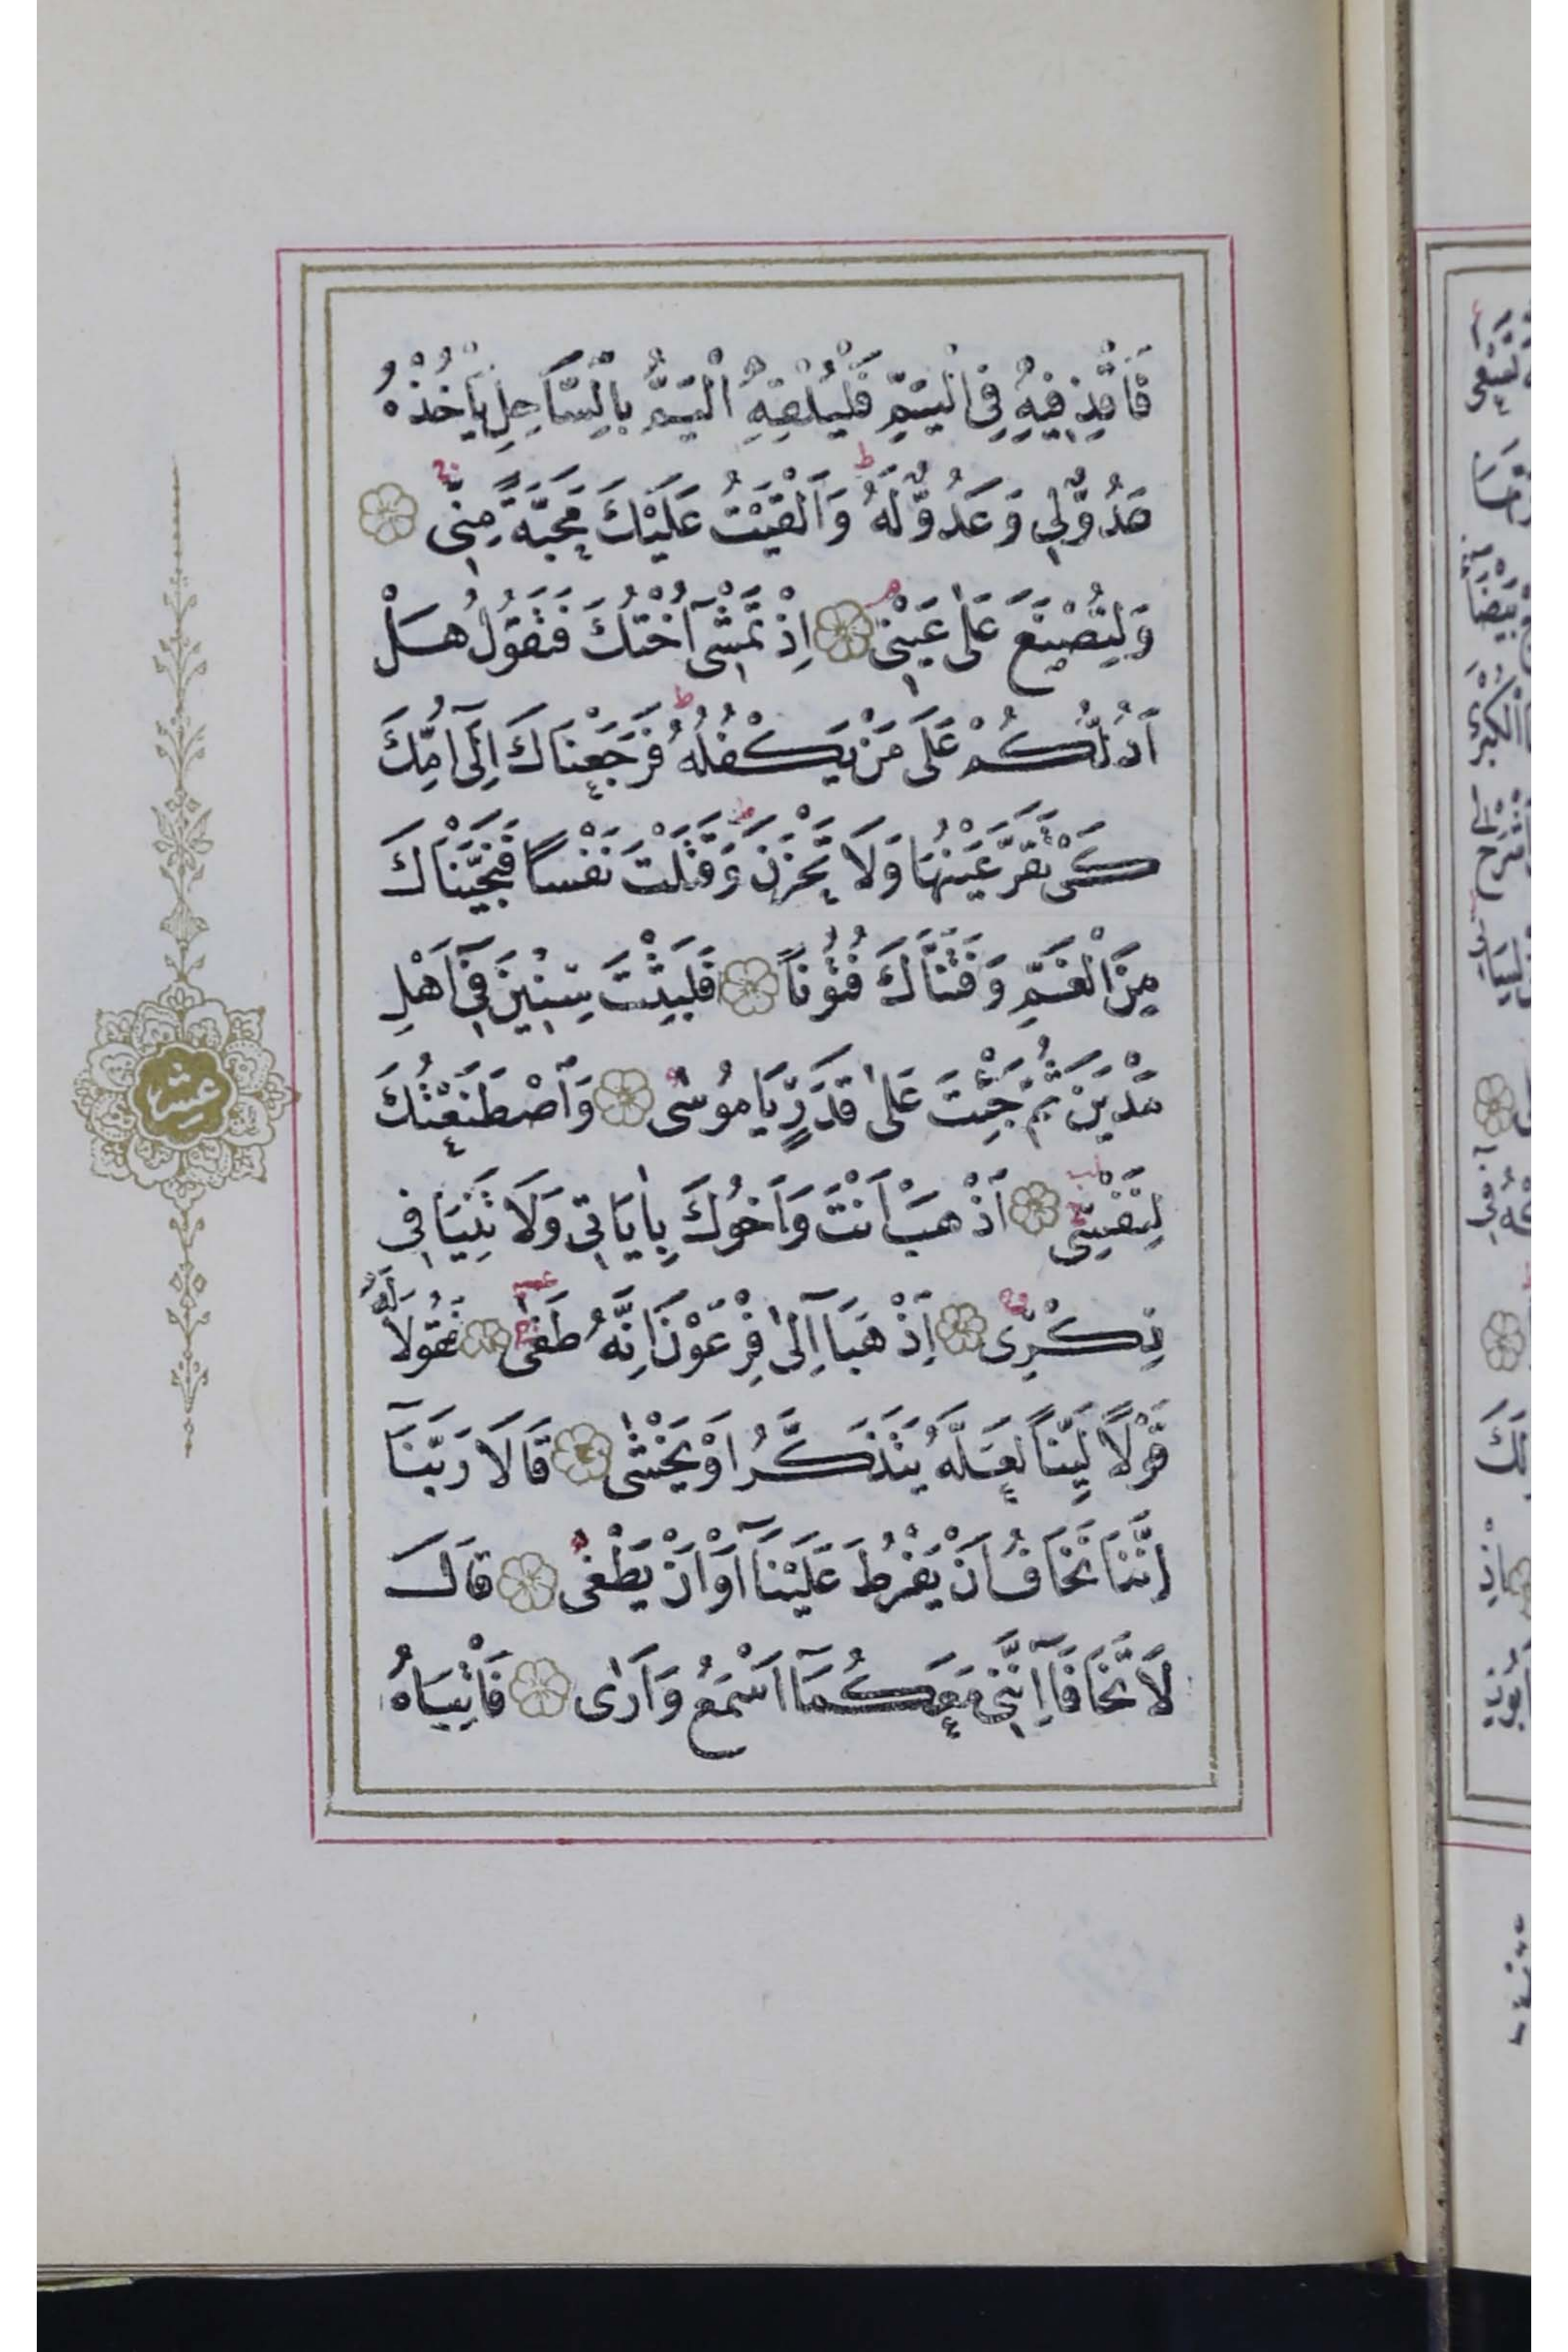 فَاقْذِفِيهِ فِي الْيَمِّ فَلْيُلْقِهِ الْيَمُّ بِالسَّاحِلِ يَأْخُذْهُ
عَدُوٌّ لِي وَعَدُوٌّ لَهُ وَاَلْقَيْتُ عَلَيْكَ مَحَبَّةً مِنِّي
وَلِتُصْنَعَ عَلٰى عَيْنِي اِذْ تَمْشِٓي اُخْتُكَ فَتَقُولُ هَلْ
اَدُلُّكُمْ عَلٰى مَنْ يَكْفُلُهُ فَرَجَعْنَاكَ اِلٰٓى اُمِّكَ
كَيْ تَقَرَّ عَيْنُهَا وَلَا تَحْزَنَ وَقَتَلْتَ نَفْسًا فَنَجَّيْنَاكَ
مِنَ الْغَمِّ وَفَتَنَّاكَ فُتُونًا فَلَبِثْتَ سِنِينَ فِٓي اَهْلِ
مَدْيَنَ ثُمَّ جِئْتَ عَلٰى قَدَرٍ يَا مُوسٰى وَاصْطَنَعْتُكَ
لِنَفْسِي اَذْهَبْ اَنْتَ وَاَخُوكَ بِاٰيَاتِي وَلَا تَنِيَا فِي
ذِكْرِي اِذْهَبَٓا اِلٰى فِرْعَوْنَ اِنَّهُ طَغٰى فَقُولَا لَهُ
قَوْلًا لَيِّنًا لَعَلَّهُ يَتَذَكَّرُ اَوْ يَخْشٰى قَالَا رَبَّنَٓا
اِنَّنَا نَخَافُ اَنْ يَفْرُطَ عَلَيْنَٓا اَوْ اَنْ يَطْغٰى قَالَ
لَا تَخَافَٓا اِنَّنِي مَعَكُمَٓا اَسْمَعُ وَاَرٰى فَأْتِيَاهُ
عشر